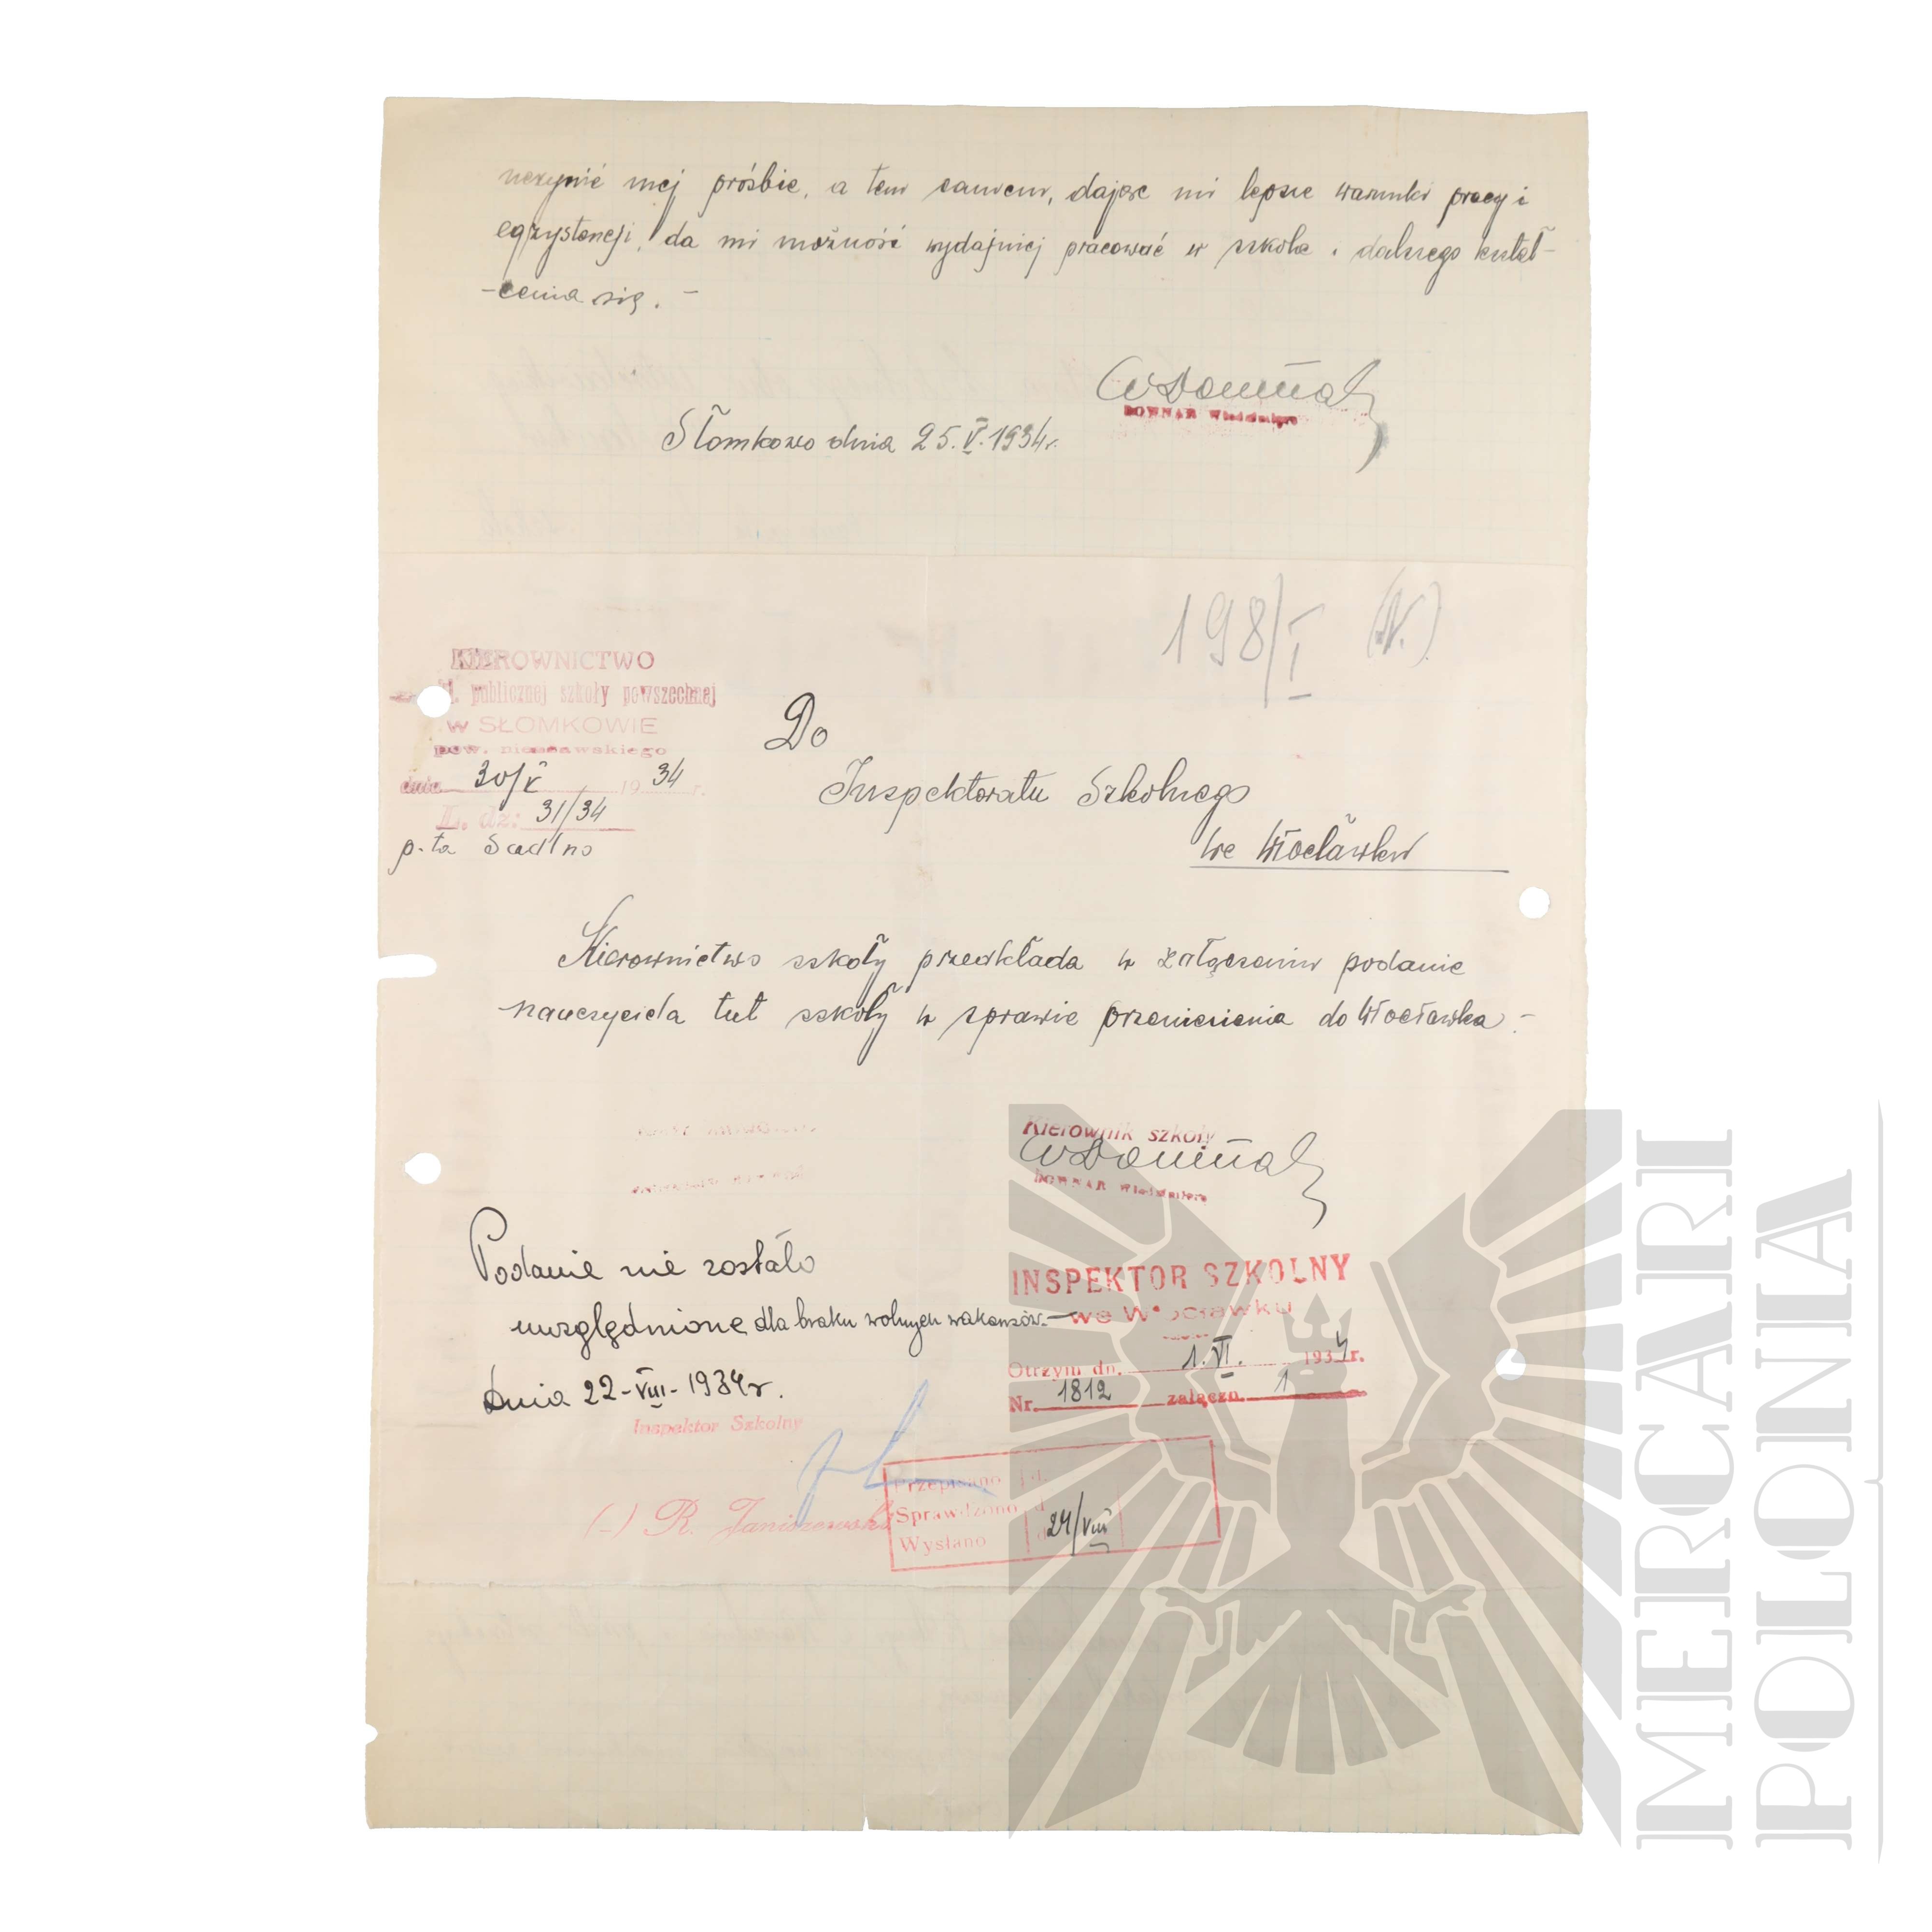 uczynić mej prośbie, a tem samem, dając mi lepsze warunki pracy i
egzystencji, da mi możność wydajniej pracować w szkole i dalszego kształ-
-cenia się. -
WDownar
DOWNAR Włodzimierz
Słomkowo dnia 25.V.1934r.
198/I (N.)
KIEROWNICTWO
publicznej szkoły powszechnej
w SŁOMKOWIE
pow. nieszawskiego
dnia 30/V 1934 r.
L. dz: 31/34
p-ta Sadlno
Do
Inspektoratu Szkolnego
we Włocławku
Kierownictwo szkoły przedkłada w załączeniu podanie
nauczyciela tut szkoły w sprawie przeniesienia do Włocławka. -
Kierownik szkoły
WDownar
DOWNAR Włodzimierz
Podanie nie zostało
uwzględnione dla braku wolnych wakansów. -
Dnia 22-VIII-1934r.
Inspektor Szkolny
(-) R. Janiszewski
INSPEKTOR SZKOLNY
we Włocławku
Otrzym dn. 1.VI. 1934r.
Nr. 1812 załączn. 1
Przepisano d.
Sprawdzono d
Wysłano d 24/VIII
IMERCARI
POLONIA